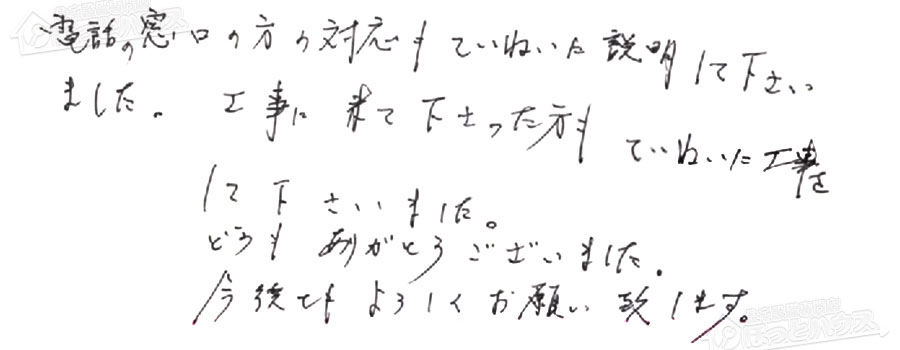 電話の窓口の方の対応もていねいに説明して下さい
ました。 工事に来て下さった方も ていねいに工事を
して下さいました。
どうもありがとうございました。
今後ともよろしくお願い致します。